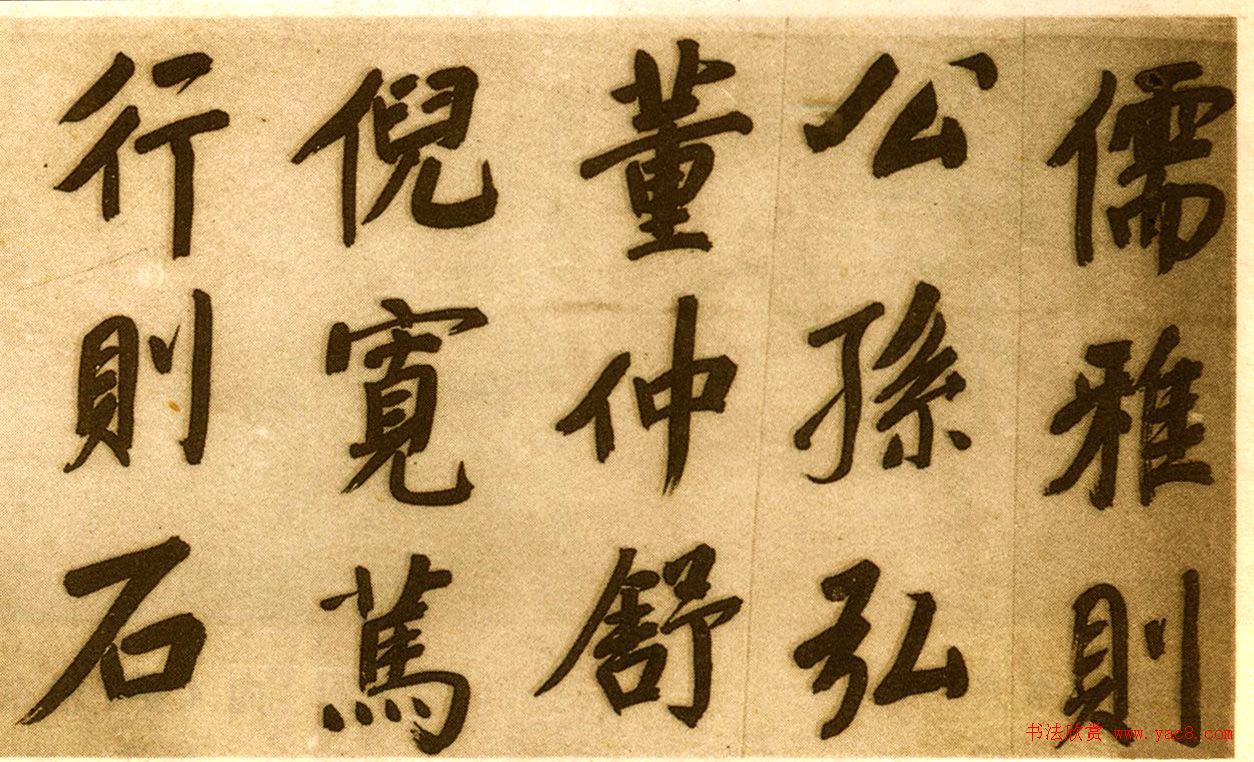 儒雅則
公孫弘
董仲舒
倪寬篤
行則石
书法欣赏 www.yac8.com